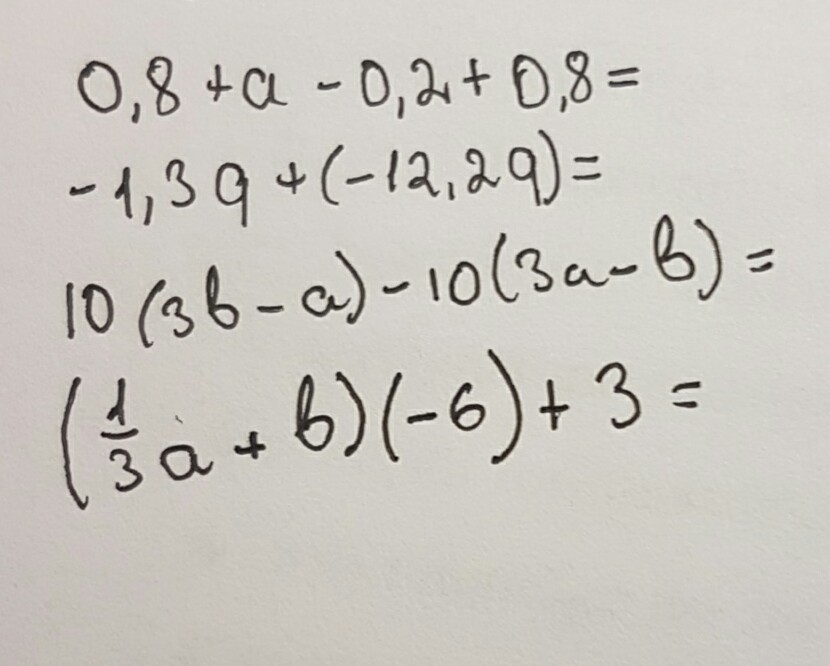 0,8 + a - 0,2 + 0,8 =
-1,3q + (-12,2q) =
10 (3b - a) - 10 (3a - b) =
(1/3 a + b)(-6) + 3 =